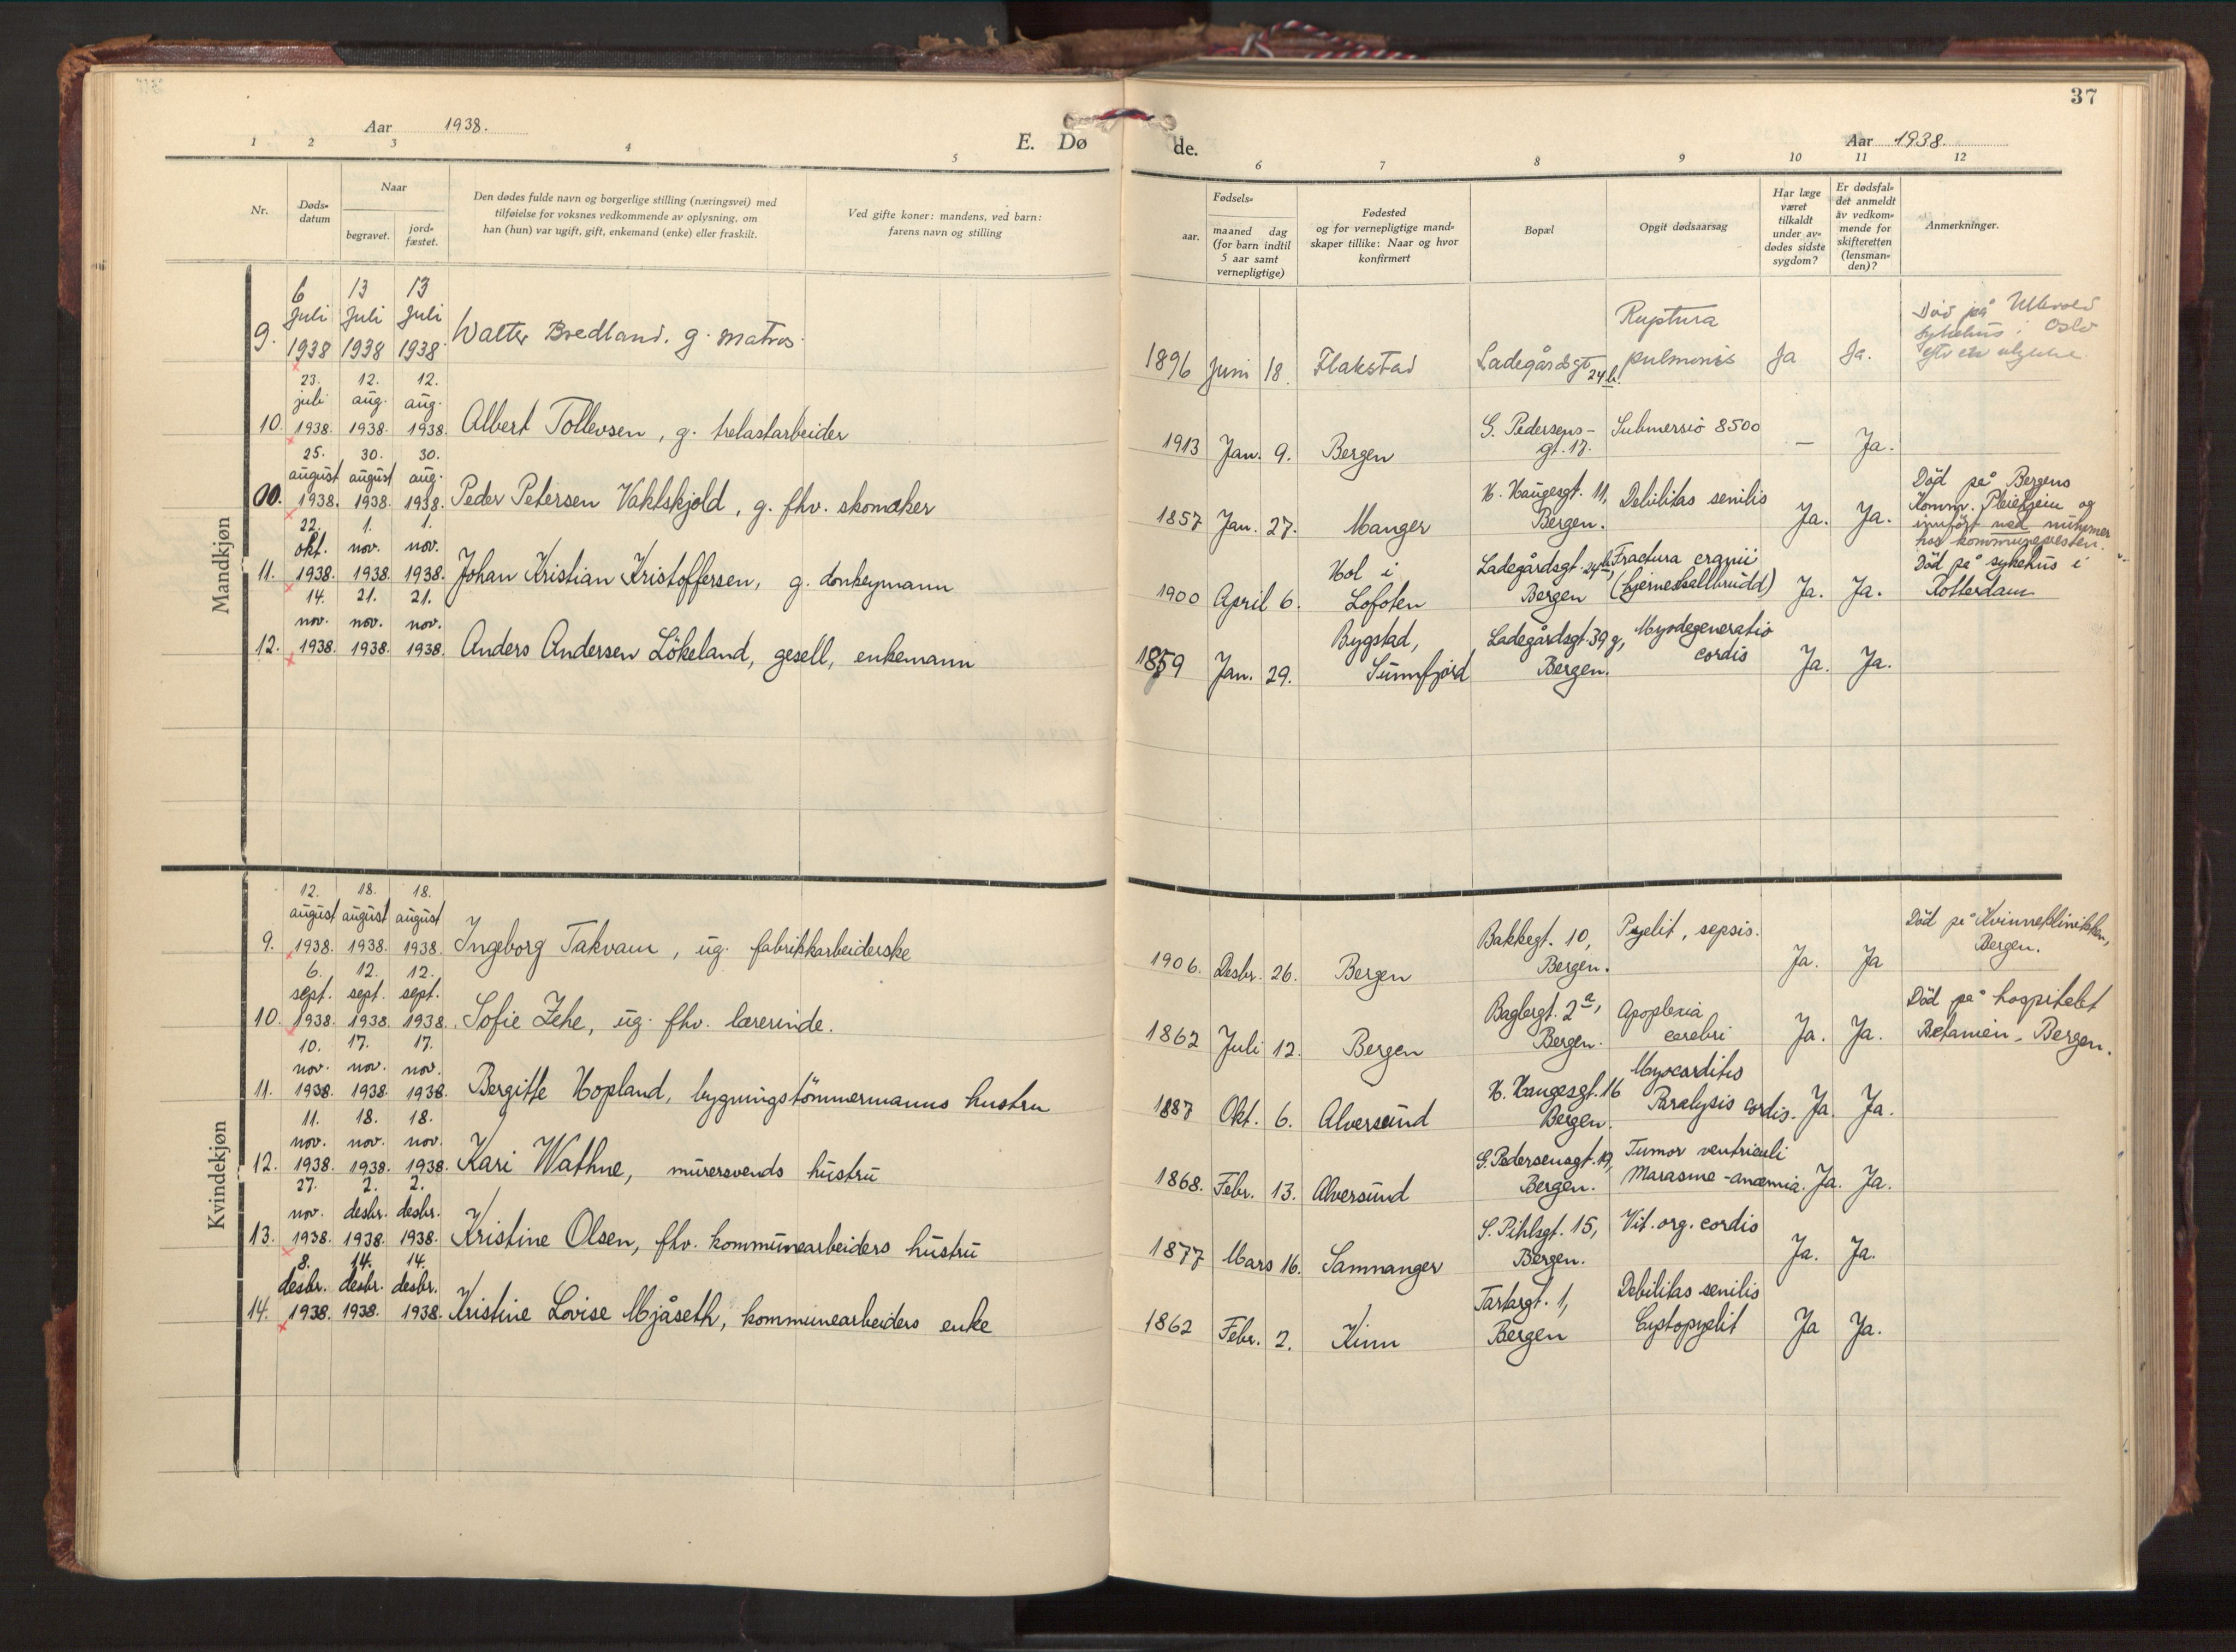 37
Aar 1938.
E. Dø
de.
Aar 1938
1 2 3 4 5 6 7 8 9 10 11 12
Nr.
Døds-
datum
Naar
begravet.
jord-
fæstet.
Den dødes fulde navn og borgerlige stilling (næringsvei) med
tilføielse for voksnes vedkommende av oplysning, om
han (hun) var ugift, gift, enkemand (enke) eller fraskilt.
Ved gifte koner: mandens, ved barn:
farens navn og stilling
Fødsels-
aar.
maaned dag
(for barn indtil
5 aar samt
vernepligtige)
Fødested
og for vernepligtige mand-
skaper tillike: Naar og hvor
konfirmert
Bopæl
Opgit dødsaarsag
Har læge
været
tilkaldt
under av-
dødes sidste
sygdom?
Er dødsfal-
det anmeldt
av vedkom-
mende for
skifteretten
(lensman-
den)?
Anmerkninger.
Mandkjøn
6 13 13
Juli Juli Juli
9. 1938 1938 1938 Walter Bredland. g. matros.
1896 Juni 18. Flakstad Ladegårdsgt. 24 b.
Ruptura
pulmonis Ja Ja.
Død på Ullevold
sykehus i Oslo
23. 12. 12.
juli aug. aug.
10. 1938. 1938. 1938. Albert Tollevsen, g. trelastarbeider
1913 Jan. 9. Bergen
G. Pedersens-
gt. 17.
Submersio 8500 — Ja.
25. 30. 30.
august august aug.
10. 1938. 1938. 1938. Peder Petersen Vaktskjold, g. fhv. skomaker
1857 Jan. 27. Manger
H. Haugesgt. 11,
Bergen.
Debilitas senilis Ja. Ja.
Død på Bergens
Komm. Pleiehjem og
innført med nummer
hos kommunepresten.
22. 1. 1.
okt. nov. nov.
11. 1938. 1938. 1938. Johan Kristian Kristoffersen, g. donkeymann
1900 April 6.
Hol i
Lofoten
Ladegårdsgt. 24 b,
Bergen
Fractura cranii
(hjerneskallbrudd) Ja. Ja.
Död på sykehus i
Rotterdam
14. 21. 21.
nov. nov. nov.
12. 1938. 1938. 1938. Anders Andersen Lökeland, gesell, enkemann
1859 Jan. 29.
Bygstad,
Sunnfjord
Ladegårdsgt. 39 g,
Bergen.
Myodegeneratio
cordis Ja. Ja.
Kvindekjøn
12. 18. 18.
august august august
9. 1938. 1938. 1938. Ingeborg Takvam, ug. fabrikkarbeiderske
1906. Desbr. 26. Bergen
Bakkegt. 10,
Bergen.
Pyelit, sepsis. Ja. Ja
Död på Kvinneklinikken,
Bergen.
6. 12. 12.
sept. sept. sept.
10. 1938. 1938. 1938. Sofie Jehe, ug. fhv. lærerinde.
1862 Juli 12. Bergen
Baglergt. 2 a,
Bergen.
Apoplexia
cerebri Ja. Ja.
Död på hospitalet
Betanien, Bergen.
10. 17. 17.
nov. nov. nov.
11. 1938. 1938. 1938. Bergitte Hopland, bygningstömmermanns hustru
1887 Okt. 6. Alversund
H. Haugesgt. 16
Bergen.
Myocarditis
Paralysis cordis. Ja. Ja.
11. 18. 18.
nov. nov. nov.
12. 1938. 1938. 1938. Kari Wathne, murersvends hustru
1868. Febr. 13. Alversund
G. Pedersensgt. 19,
Bergen.
Tumor ventriculi
Marasme - anæmia. Ja. Ja.
27. 2. 2.
nov. desbr. desbr.
13. 1938. 1938. 1938. Kristine Olsen, fhv. kommunearbeiders hustru
1877 Mars 16. Samnanger
S. Pihlsgt. 15,
Bergen.
Vit. org. cordis Ja. Ja.
8. 14. 14.
desbr. desbr. desbr.
14. 1938. 1938. 1938. Kristine Lovise Mjåseth, kommunearbeiders enke
1862 Febr. 2. Kinn
Tartargt. 1,
Bergen
Debilitas senilis
Cystopyelit Ja Ja.